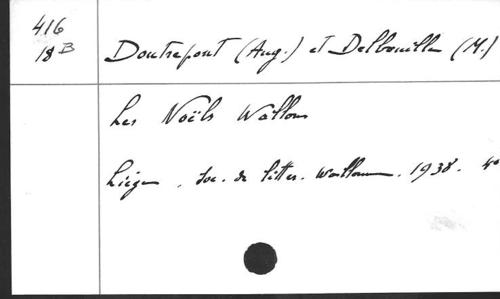 416
18 B
Doutrepont (Aug.) et Delbouille (M.)
Les Noëls Wallons
Liège, Soc. de litter. wallonne. 1938. 4°